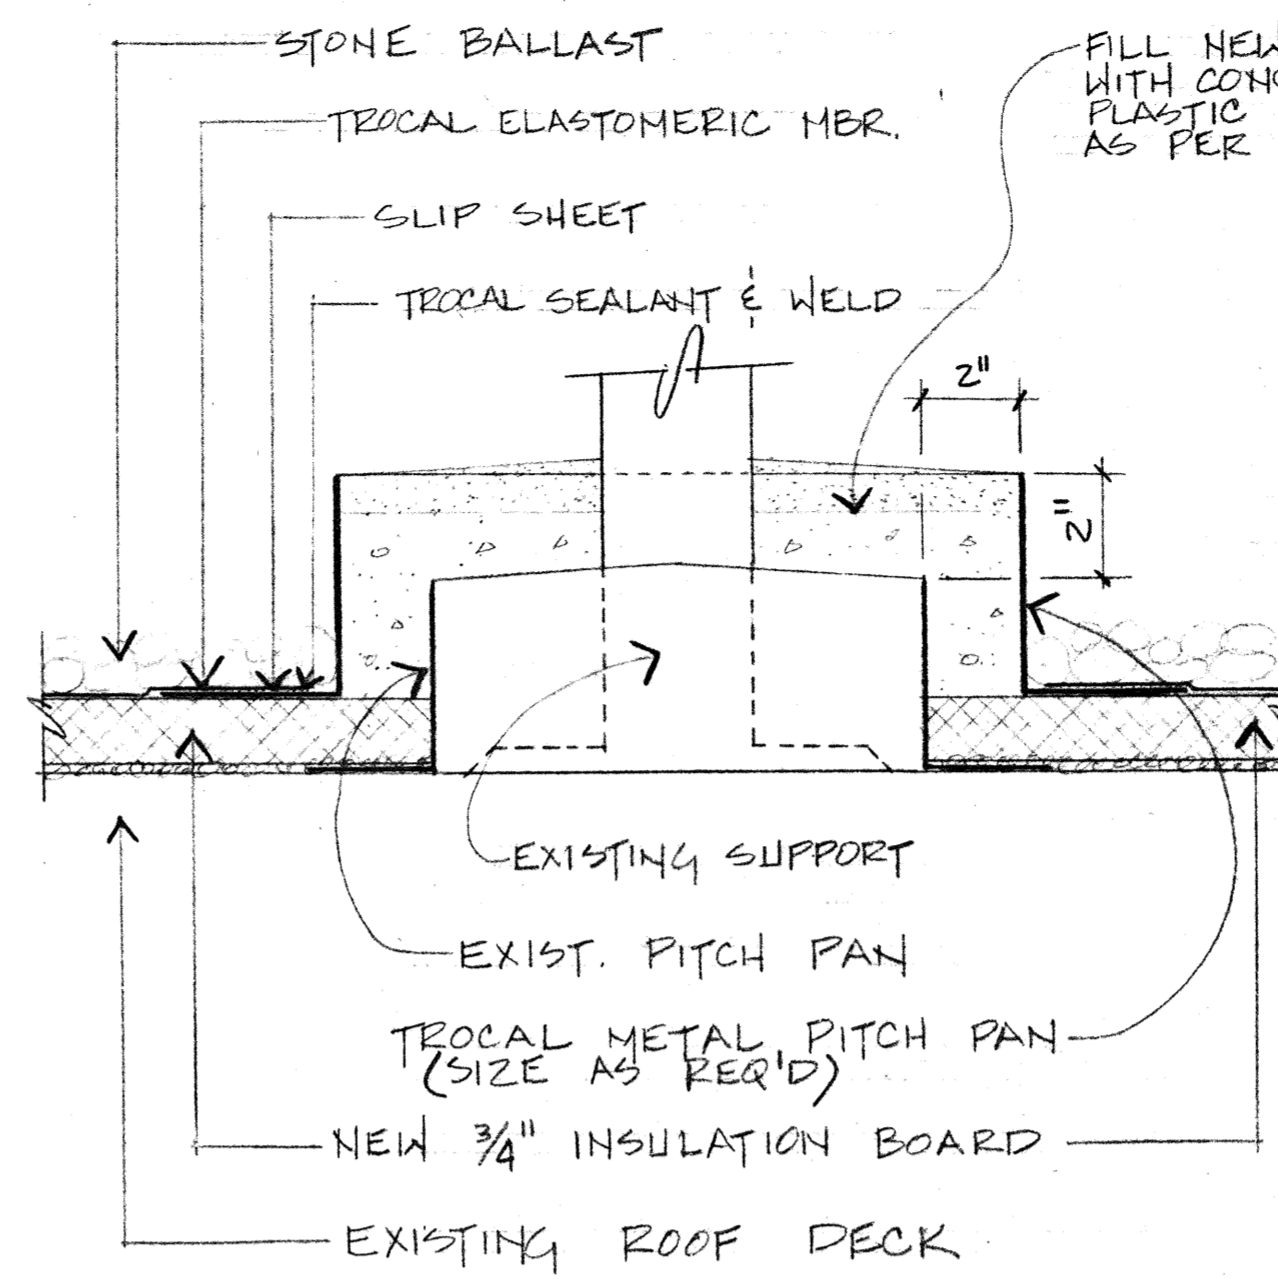 STONE BALLAST
TROCAL ELASTOMERIC MBR.
SLIP SHEET
TROCAL SEALANT & WELD
FILL NEW
WITH CONC
PLASTIC
AS PER
2"
2"
EXISTING SUPPORT
EXIST. PITCH PAN
TROCAL METAL PITCH PAN
(SIZE AS REQ'D)
NEW 3/4" INSULATION BOARD
EXISTING ROOF DECK